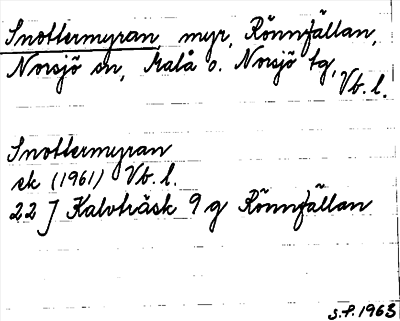 Snottermyran, myr, Rönnfällan,
Norsjö sn, Malå o. Norsjö tg,
Vb. l.
Snottermyran
ek (1961) Vb. l.
22 J Kalvträsk 9 g Rönnfällan
S.P. 1963